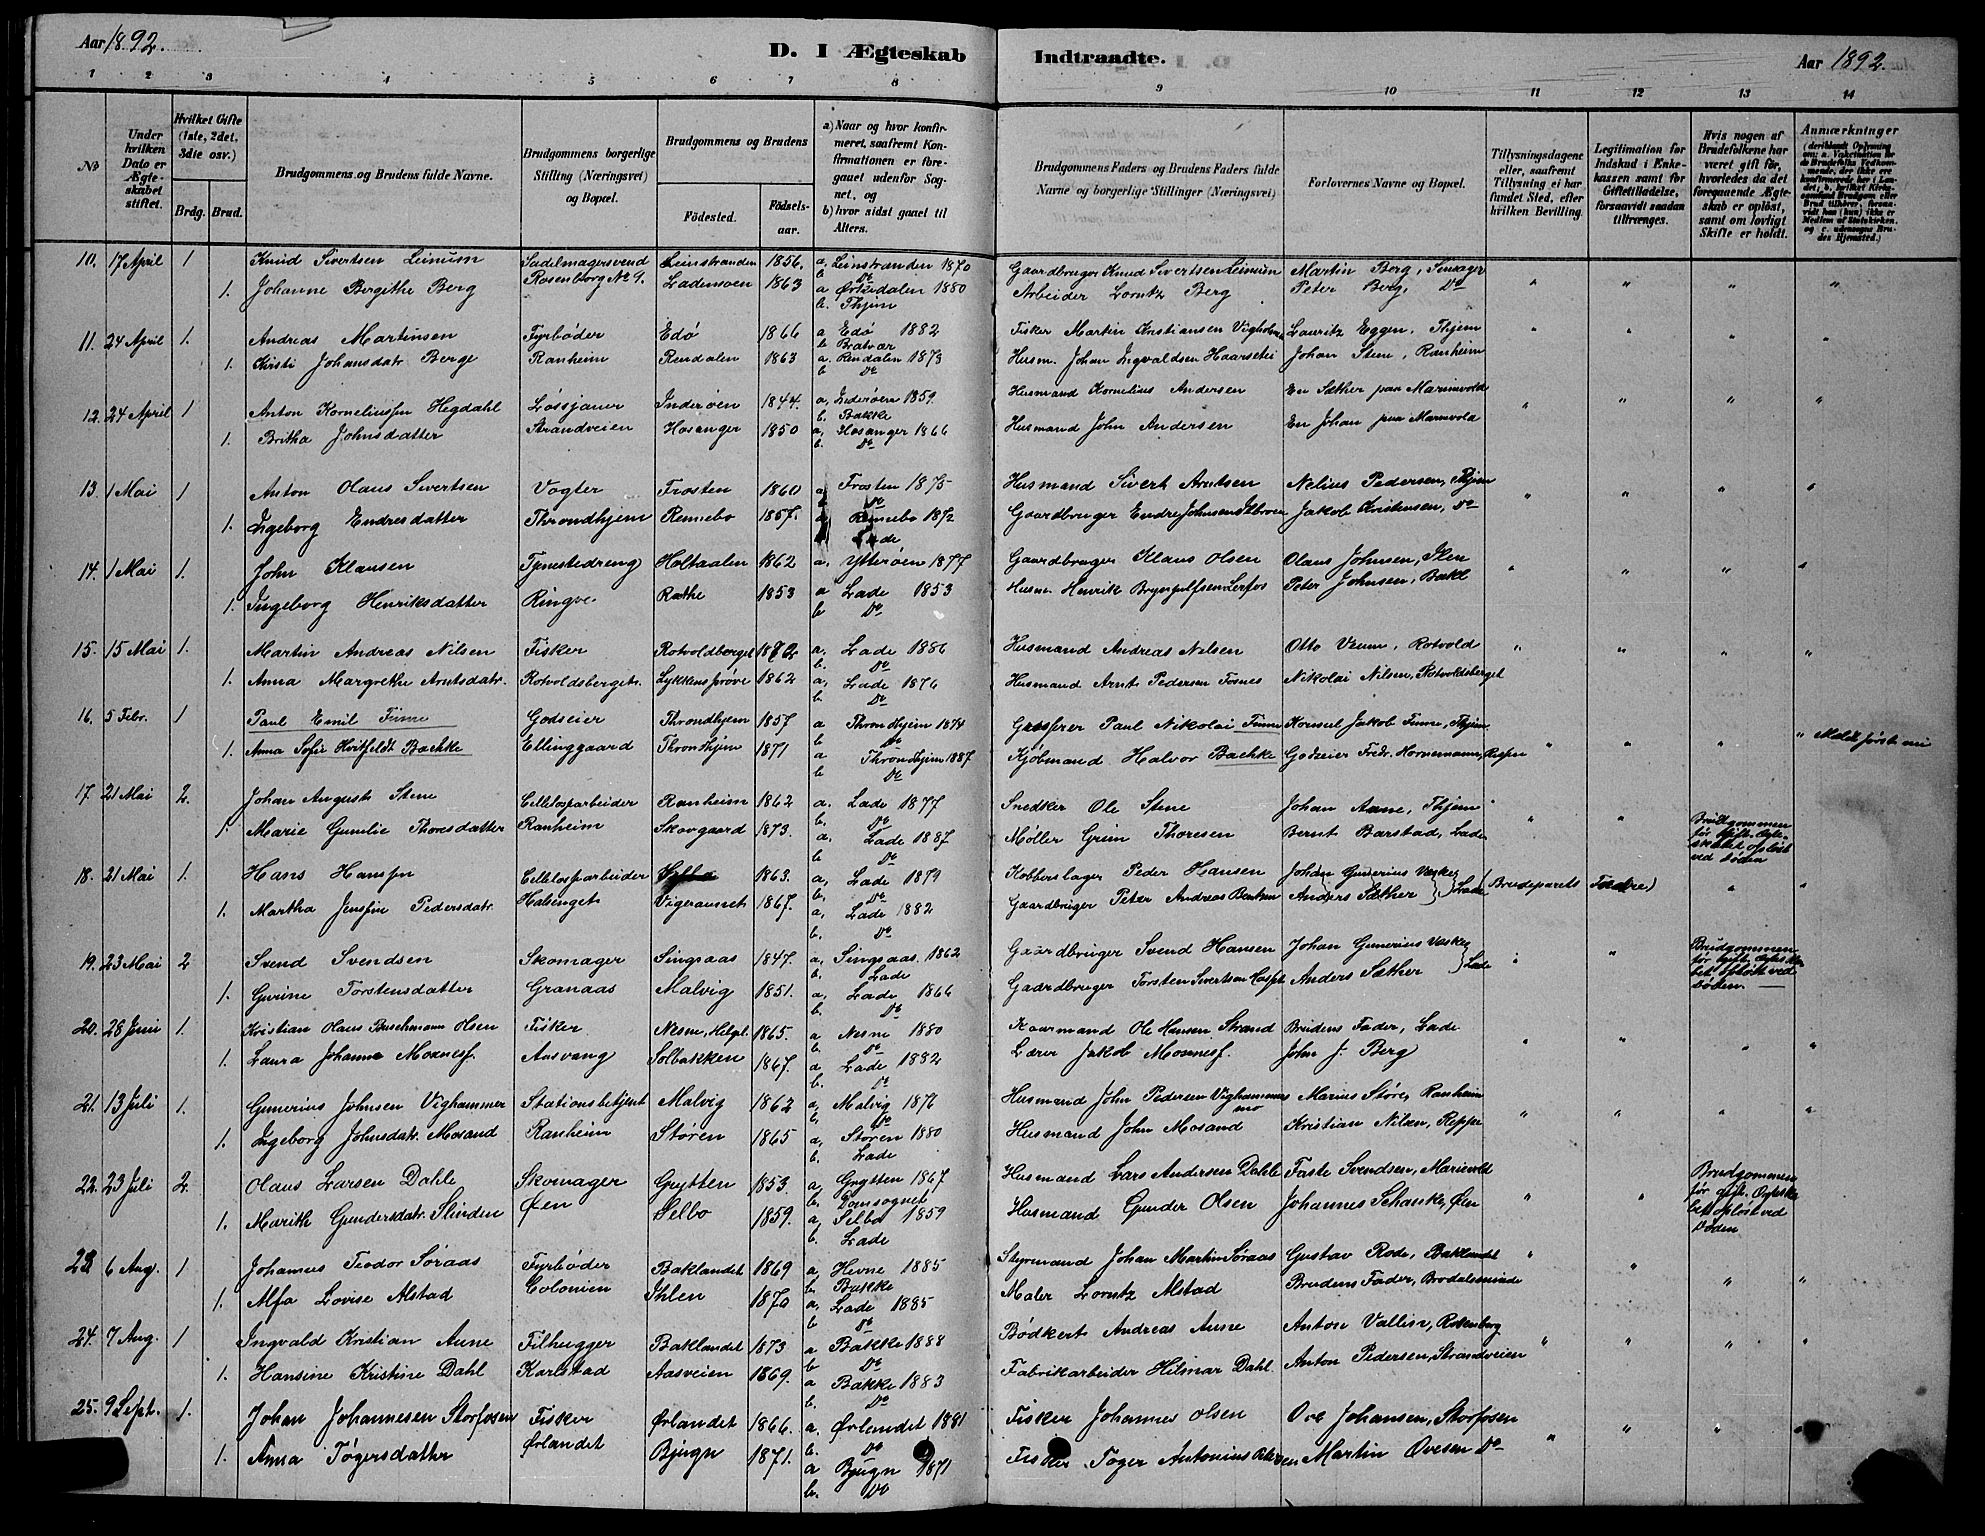 Aar 1892.
D. I Ægteskab Indtraadte.
Aar 1892.
1 2 3 4 5 6 7 8 9 10 11 12 13 14
No
Under hvilken Dato er Ægteskabet stiftet.
Hvilket Gifte (1ste, 2det, 3die osv.)
Brdg. Brud.
Brudgommens og Brudens fulde Navne.
Brudgommens borgerlige Stilling (Næringsvei) og Bopæl.
Brudgommens og Brudens
Födested.
Födselsaar.
a) Naar og hvor konfirmeret, saafremt Konfirmationen er foregaaet udenfor Sognet, og
b) hvor sidst gaaet til Alters.
Brudgommens Faders og Brudens Faders fulde Navne og borgerlige Stillinger (Næringsvei)
Forlovernes Navne og Bopæl.
Tillysningsdagene eller, saafremt Tillysning ei har fundet Sted, efter hvilken Bevilling.
Legitimation for Indskud i Enkekassen samt for Giftetilladelse, forsaavidt saadan tiltrænges.
Hvis nogen af Brudefolkene har været gift för, hvorledes da det foregaaende Ægteskab er oplöst, samt om lovligt Skifte er holdt.
Anmærkninger
10. 17 April 1 Knud Sivertsen Leinum Sadelmagersvend Leinstranden 1856. a. Leinstranden 1870 Gaardbruger Knud Sivertsen Leinum Martin Berg, Sensager
b Do
1. Johanne Bergithe Berg Rosenborg No 9. Lademoen 1863 a Ørkedalen 1880 Arbeider Lorntz Berg Peter Berg, Do
b. Thjem
11. 24 April 1. Andreas Martinsen Fyrbøder Edø 1866 a Edø 1882 Fisker Martin Kristiansen Lauritz Eggen, Thjem
b Bratvær
1. Kristi Johansdatr Berge Ranheim Rendalen 1863 a. Rendalen 1873 Husm. Johan Ingvaldsen Johan Stene, Ranheim
b. Do
12. 24 April 1 Anton Korneliussen Hegdahl Løssjauer Inderøen 1844. a, Inderøen 1859. Husmand Kornelius Andersen En Sæther paa Marienvold
b. Bakke
1. Britha Johnsdatter Strandveien Hosanger 1850 a, Hosanger 1866 Husmand John Andersen En Johan paa Marienvold
b. Do
13. 1 Mai 1 Anton Olaus Sivertsen Vogter Frosten 1860 a Frosten 1875 Husmand Sivert Arntsen Nelius Pedersen, Thjem
b Do
1. Ingeborg Endresdatter Throndhjem Rennebo 1857. a Rennebo 1872 Gaardbruger Endre Johnsen Jakob Kristensen, Do
Lade
14. 1 Mai 1. John Klausen Tjenestedreng Holtaalen 1862 a. Ytterøen 1877 Gaardbruger Klaus Olsen Olaus Johnsen, Ilen
1. Ingeborg Henriksdatter Ringve Ræthe 1853 a Lade 1853 Husm. Henrik Bryngulfsen Lerfos Peter Johnsen, Bakl
b Do
15. 15 Mai 1. Martin Andreas Nilsen Fisker Rotvoldberget 1862 a, Lade 1886 Husmand Andreas Nilsen Otto Veum, Rotvold
b. Do
1. Anna Margrethe Arntsdatr. Rotvoldsberget. Lykkensprøve 1862 a, Lade 1876 Husmand Arnt Pedersen Fosnes Nikolai Nilsen, Rotvoldsberget
b. Do
16. 5 Febr. 1 Paul Emil Finne Godseier Throndhjem 1857 a Throndhjem 1874 Grosserer Paul Nikolai Finne Konsul Jakob Finne, Thjem
b Do
1. Anna Sofie Hvitfeldt Bachke Ellinggaard Throndhjem 1871 a Throndhjem 1887 Kjøbmand Halvor Bachke Godseier Fredr. Hornemann, Reppe " Meldt først nu
b Do
17. 21 Mai 2. Johan August Stene Celluloserbeider Ranheim 1862 a. Lade 1877 Snedker Ole Stene Johan Aune, Thjem
b. Do
1. Marie Gunilie Thoresdatter Ranheim Skovgaard 1873. a. Lade 1887. Møller Grim Thoresen Bernt Barstad, Lade Brudgommen før gift. Ægteskabet opløst ved Døden
b Do
18. 21 Mai 1. Hans Hanssen 1863. a, Lade 1879 Kobberslager Peder Hansen Johan Gunerius Væske
b. Do
1. Martha Jensine Pedersdatr. Halsinget 1867. a, Lade 1882 Gaardbruger Peter Andreas Berntsen Anders Sæther } Lade (Brudeparets Fædre)
b. Do
19. 23 Mai 2 Svend Svendsen Skomager Singsaas 1847. a, Singsaas. 1862 Gaardbruger Svend Hansen Johan Gunerius Væske
b. Lade
1. Gurine Torstensdatter Granaas Malvig 1851. a, Lade 1866 Gaardbruger Torsten Sivertsen Anders Sæther } Lade Brudgommen før gift. Ægteskabet opløst ved Døden.
b. Do
20. 28 Juni 1. Kristian Olaus Buschmann Olsen Fisker Nesne, Helgel. 1865. a Nesne 1880 Kaarmand Ole Hansen Strand Brudens Fader, Lade
b. Do
1. Laura Johanne Moxnesf. Aasvang Solbakken 1867. a Lade 1882 Lærer Jakob Moxnesf. John J. Berg
b. Do
21. 13 Juli 1. Gunerius Johnsen Vighammer Stationsbetjent Malvig 1862 a, Malvig 1876 Husmand John Pedersen Vighammer Marius Støre, Ranheim
b. Do
1. Ingeborg Johnsdatr. Mosand Ranheim Støren 1865 a, Støren 1880 Husmand John Mosand Kristian Nilsen, Reppe
b. Lade
22. 23 Juli 2. Olaus Larsen Dahle Skomager Grytten 1853. a, Grytten 1867 Husmand Lars Andersen Dahle Faste Svendsen, Marievold
b. Domsognet
1. Marith Gundersdatr. Slinden Øen Selbo 1859. a, Selbo 1859 Husmand Gunder Olsen Johannes Schanke, Øen Brudgommen før gift. Ægteskabet opløst ved Døden
b. Lade
23 6 Aug. 1 Johannes Teodor Søraas Fyrbøder Baklandet 1869 a Hevne 1885 Styrmand Johan Martin Søraas Gustav Rode, Baklandet
b. Bakke
1. Alfa Lovise Alstad Colonien Ihlen 1870 a, Lade 1885 Maler Lorntz Alstad Brudens Fader, Brodalsminde
b Do
24. 7 Aug. 1 Ingvald Kristian Aune Filhugger Baklandet 1873 a Bakke 1888 Bødkert Andreas Aune Anton Vallin, Rosenborg
b Do
1. Hansine Kristine Dahl Karlstad Aasveien 1869. a Bakke 1883 Fabrikarbeider Hilmar Dahl Anton Pedersen, Strandveien
b. Do
25. 9 Sept. 1. Johan Johannesen Storfosen Fisker Ørlandet 1866. a. Ørlandet 1881 Fisker Johannes Olsen Ove Johansen, Storfosen
b. Do
1. Anna Tøgersdatter Ørlandet Bjugn 1871. a Bjugn 1871 Fisker Tøger Antonius Martin Ovesen Do
b. Do